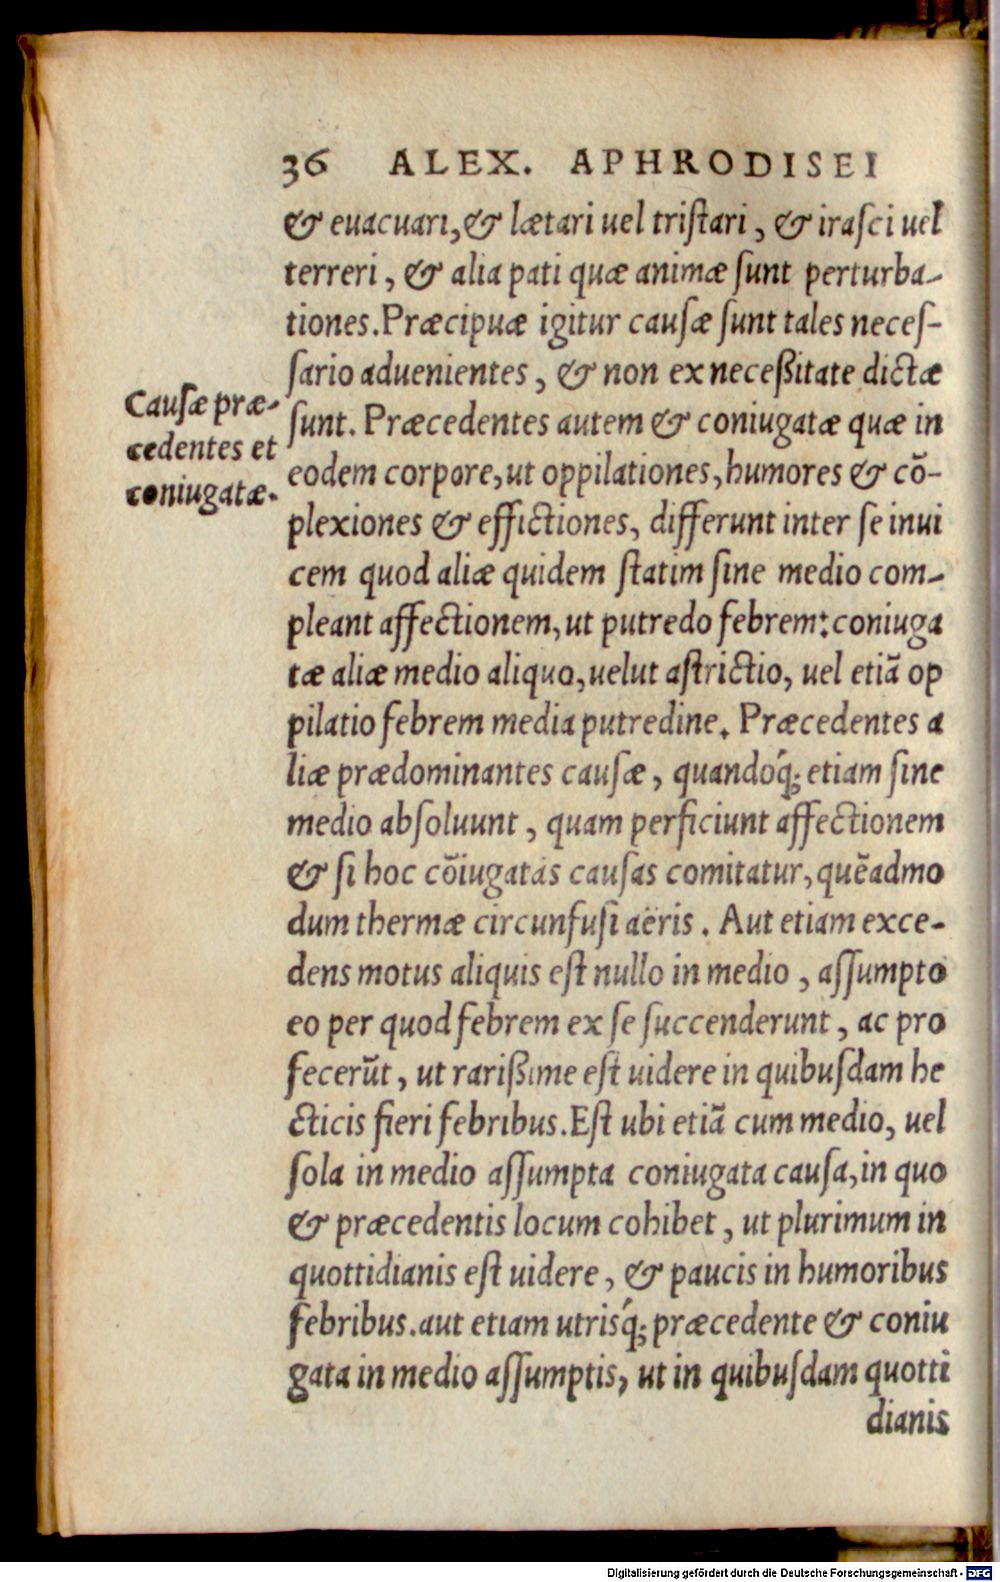 36 ALEX. APHRODISEI
& euacuari, & lætari uel triſtari, & iraſci uel
terreri, & alia pati quæ animæ ſunt perturba-
tiones. Præcipuæ igitur cauſæ ſunt tales neceſ-
ſario aduenientes, & non ex neceßitate dictæ
Cauſæ præ-
cedentes et
coniugatæ.
ſunt. Præcedentes autem & coniugatæ quæ in
eodem corpore, ut oppilationes, humores & cõ-
plexiones & effictiones, differunt inter ſe inui
cem quod aliæ quidem ſtatim ſine medio com-
pleant affectionem, ut putredo febrem: coniuga
tæ aliæ medio aliquo, uelut aſtrictio, uel etiã op
pilatio febrem media putredine. Præcedentes a
liæ prædominantes cauſæ, quandoq́; etiam ſine
medio abſoluunt, quam perficiunt affectionem
& ſi hoc cõiugatas cauſas comitatur, quẽadmo
dum thermæ circunfuſi aëris. Aut etiam exce-
dens motus aliquis eſt nullo in medio, aſſumpto
eo per quod febrem ex ſe ſuccenderunt, ac pro
fecerũt, ut rarißime eſt uidere in quibuſdam he
cticis fieri febribus. Eſt ubi etiã cum medio, uel
ſola in medio aſſumpta coniugata cauſa, in quo
& præcedentis locum cohibet, ut plurimum in
quottidianis eſt uidere, & paucis in humoribus
febribus. aut etiam utrisq́; præcedente & coniu
gata in medio aſſumptis, ut in quibuſdam quotti
dianis
Digitalisierung gefördert durch die Deutsche Forschungsgemeinschaft - DFG